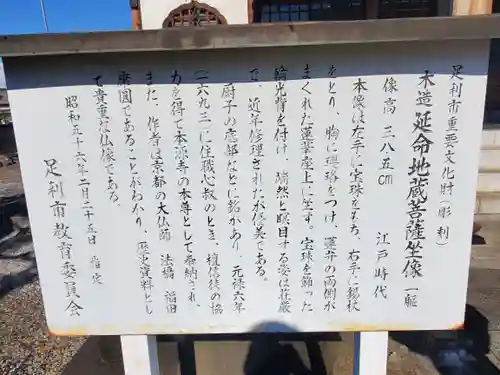 足利市重要文化財(彫刻)
木造 延命地蔵菩薩坐像 一軀
像高 三八・五㎝ 江戸時代
本像は左手に宝珠をもち、右手に錫杖
をとり、胸に瓔珞をつけ、蓮弁の両側が
まくれた蓮華座上に坐す。宝珠を飾った
輪光背を付け、端然と瞑目する姿は荘厳
で、近年修理されたが優美である。
厨子の底部などに銘があり、元禄六年
(一六九三)に住職心叔のとき、檀信徒の協
力を得て本源寺の本尊として奉納され、
また、作者は京都の大仏師 法橋 福田
康圓であることがわかり、歴史資料とし
て貴重な仏像である。
昭和五十六年二月二十五日 指定
足利市教育委員会